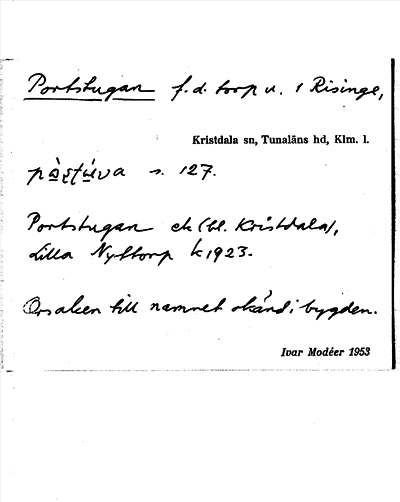 Portstugan f.d. torp u. 1 Risinge,
Kristdala sn, Tunaläns hd, Klm. l.
s. 127.
Portstugan ek (bl. Kristdala),
Lilla Nyttorp k 1923.
Orsaken till namnet okänd i bygden.
Ivar Modéer 1953